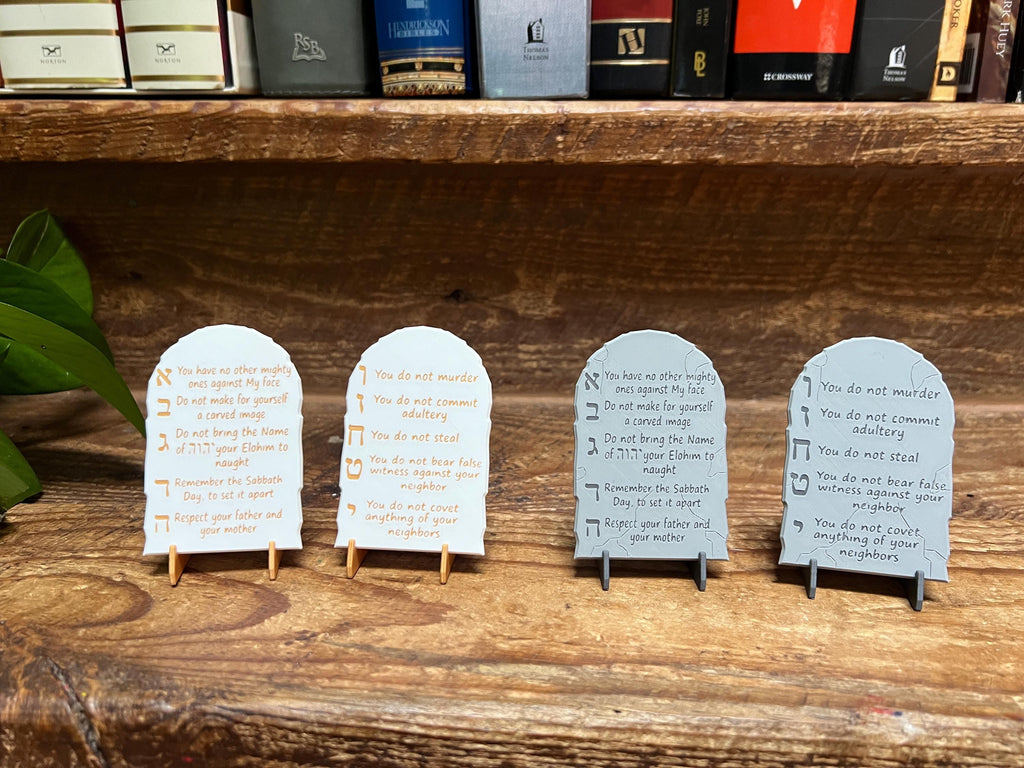 NORTON
NORTON
RSB
HENDRICKSON
BIBLES
THOMAS
NELSON
CROSSWAY
THOMAS
NELSON
א You have no other mighty
ones against My face
ב Do not make for yourself
a carved image
ג Do not bring the Name
of יהוה your Elohim to
naught
ד Remember the Sabbath
Day, to set it apart
ה Respect your father and
your mother
ו You do not murder
ז You do not commit
adultery
ח You do not steal
ט You do not bear false
witness against your
neighbor
י You do not covet
anything of your
neighbors
א You have no other mighty
ones against My face
ב Do not make for yourself
a carved image
ג Do not bring the Name
of יהוה your Elohim to
naught
ד Remember the Sabbath
Day, to set it apart
ה Respect your father and
your mother
ו You do not murder
ז You do not commit
adultery
ח You do not steal
ט You do not bear false
witness against your
neighbor
י You do not covet
anything of your
neighbors